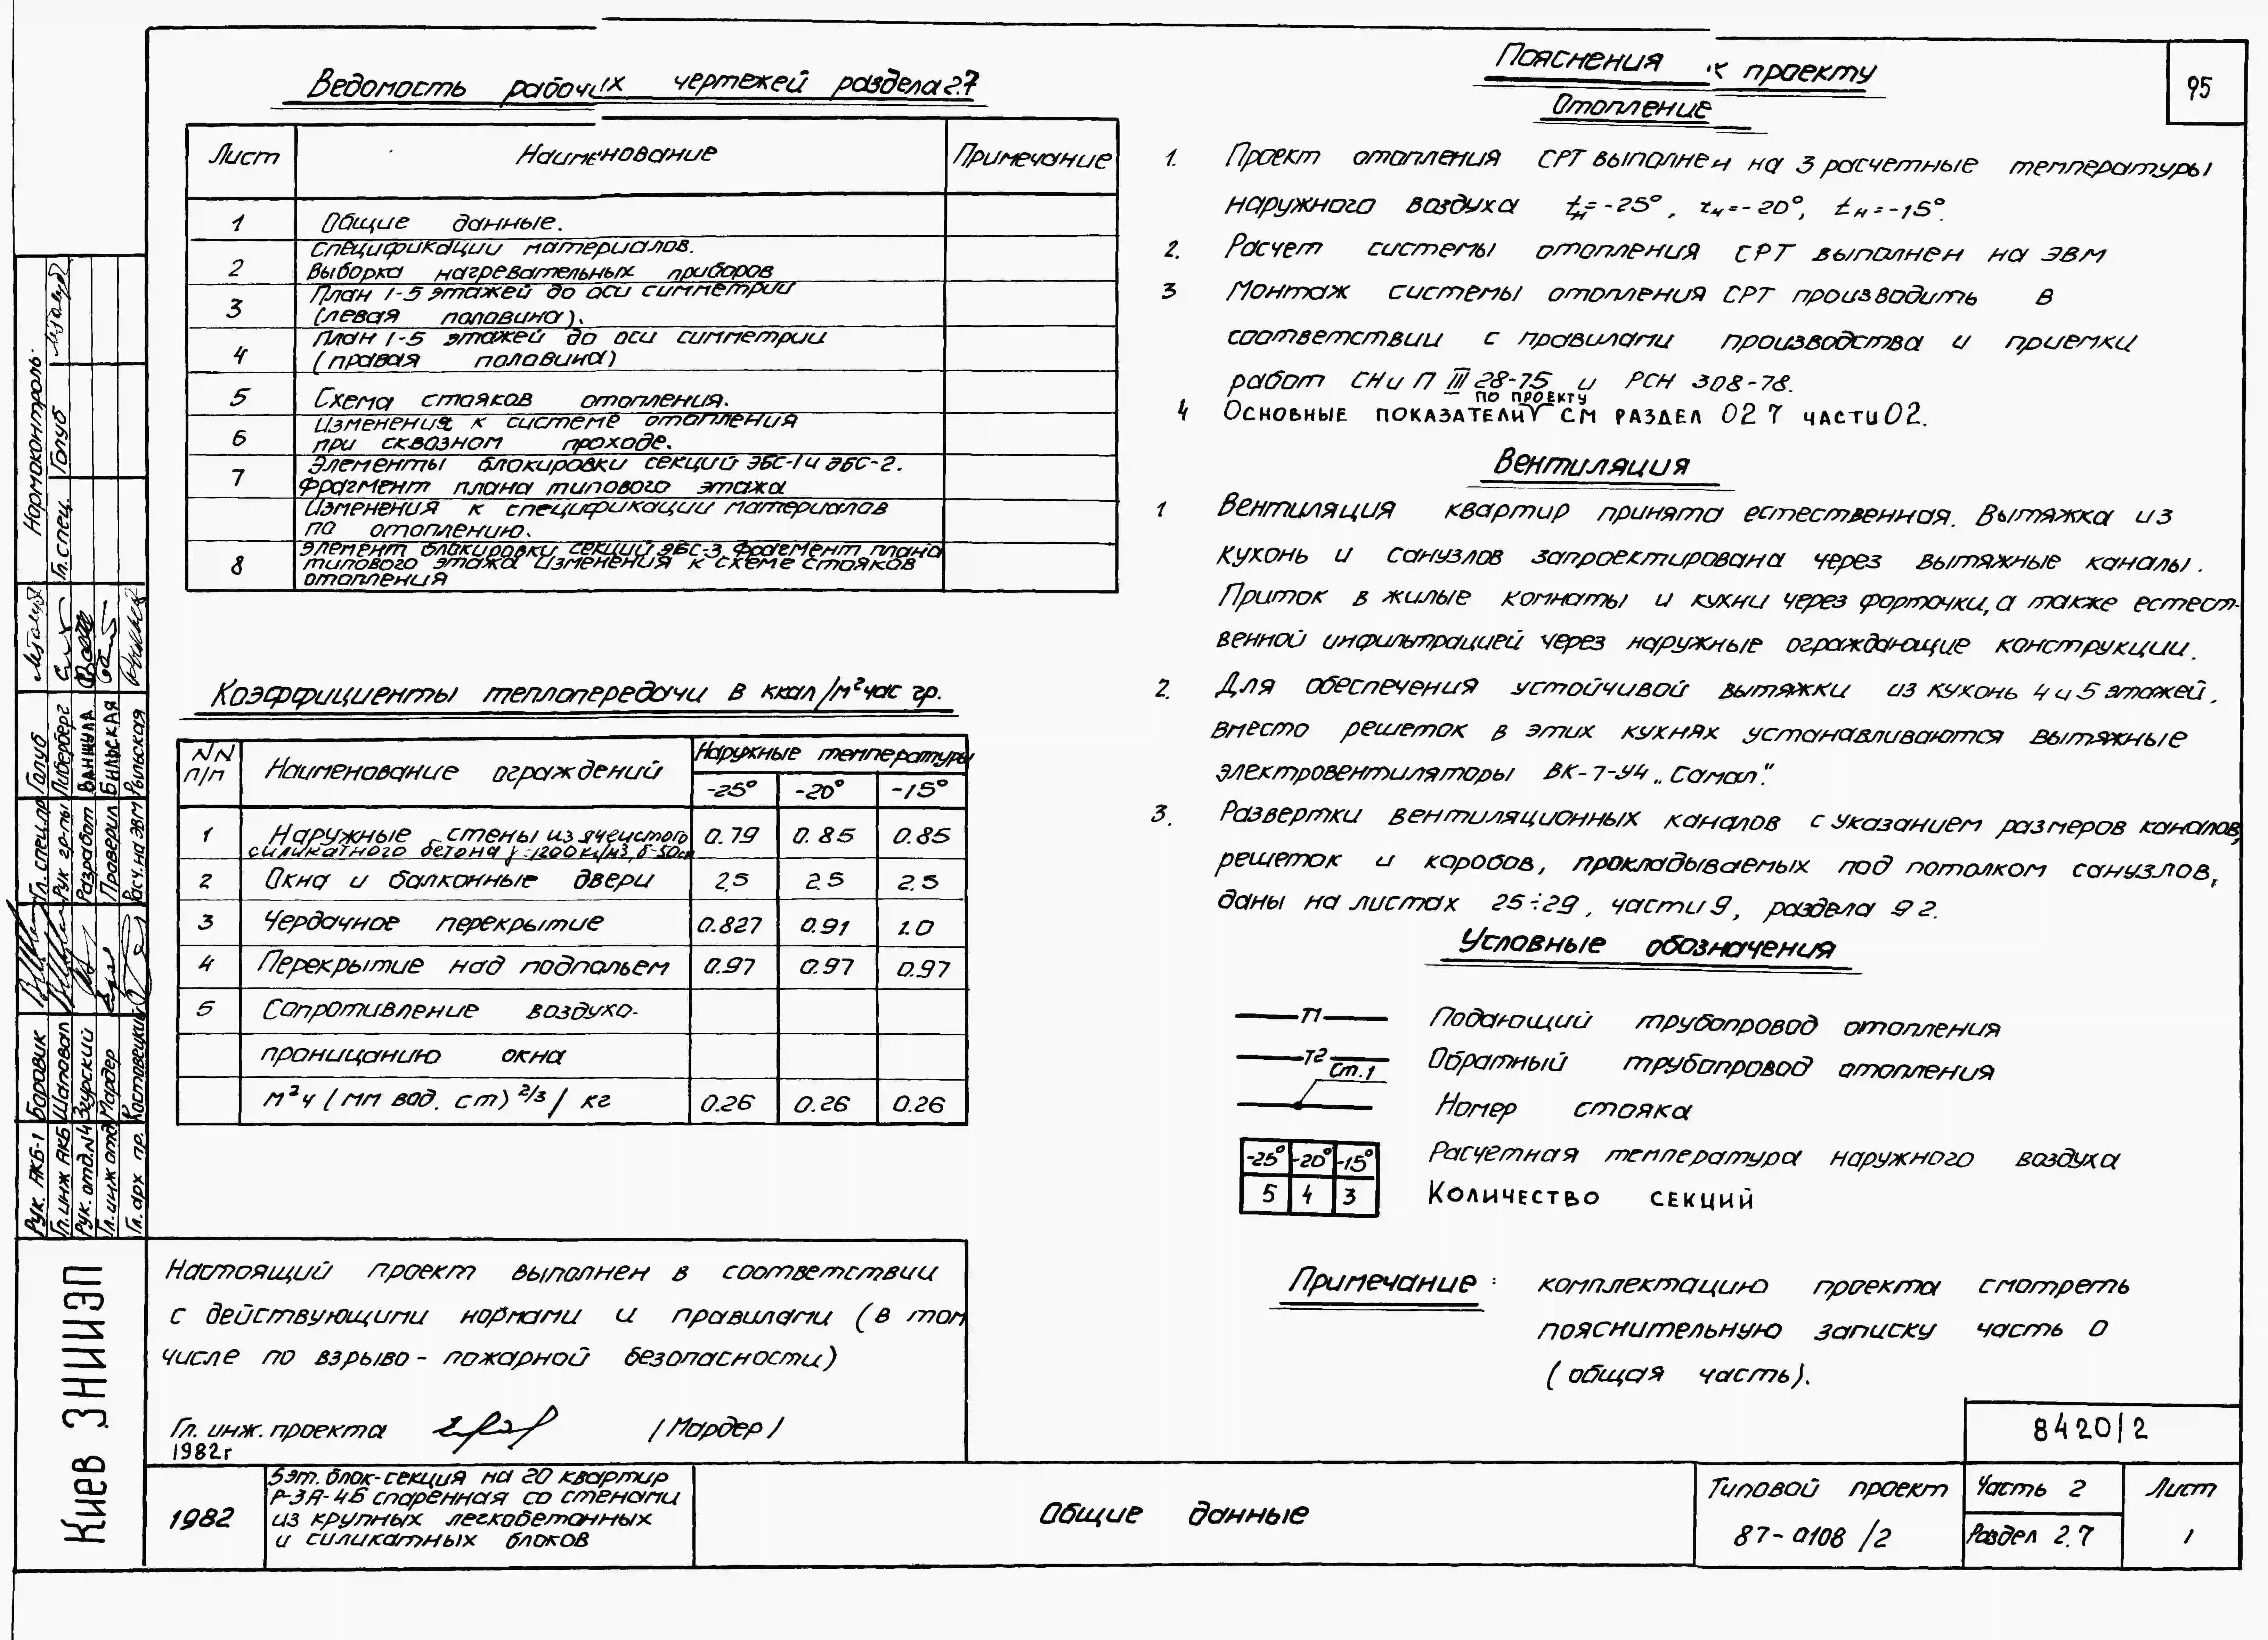 95
Ведомость рабочих чертежей раздела 2.7
Лист Наименование Примечание
1 Общие данные.
2 Спецификации материалов.
Выборка нагревательных приборов
3 План 1-5 этажей до оси симметрии
(левая половина).
4 План 1-5 этажей до оси симметрии
(правая половина)
5 Схема стояков отопления.
6 Изменения к системе отопления
при сквозном проходе.
7 Элементы блокировки секций ЭБС-1 и ЭБС-2.
Фрагмент плана типового этажа
Изменения к спецификации материалов
по отоплению.
8 Элемент блокировки секций ЭБС-3. Фрагмент плана
типового этажа Изменения к схеме стояков
отопления
Коэффициенты теплопередачи в ккал/м²час гр.
NN п/п Наименование ограждений Наружные температуры
-25° -20° -15°
1 Наружные стены из ячеистого
силикатного бетона γ=1200кг/м3, δ=50см 0.79 0.85 0.85
2 Окна и балконные двери 2.5 2.5 2.5
3 Чердачное перекрытие 0.827 0.91 1.0
4 Перекрытие над подпольем 0.97 0.97 0.97
5 Сопротивление воздухо-
проницанию окна
м²ч (мм вод. ст)2/3/ кг 0.26 0.26 0.26
Настоящий проект выполнен в соответствии
с действующими нормами и правилами (в том
числе по взрыво- пожарной безопасности)
Гл. инж. проекта /Мардер/
1982г
Пояснения к проекту
Отопление
1. Проект отопления СРТ выполнен на 3 расчетные температуры
наружного воздуха tн=-25°, tн=-20°, tн=-15°.
2. Расчет системы отопления СРТ выполнен на ЭВМ
3 Монтаж системы отопления СРТ производить в
соответствии с правилами производства и приемки
работ СНиП III 28-75 и РСН 308-78.
4 Основные показатели по проекту см раздел 02 7 части 02.
Вентиляция
1 Вентиляция квартир принята естественная. Вытяжка из
кухонь и санузлов запроектирована через вытяжные каналы.
Приток в жилые комнаты и кухни через форточки, а также естест-
венной инфильтрацией через наружные ограждающие конструкции.
2. Для обеспечения устойчивой вытяжки из кухонь 4 и 5 этажей,
вместо решеток в этих кухнях устанавливаются вытяжные
электровентиляторы ВК-7-У4 „Самал".
3. Развертки вентиляционных каналов с указанием размеров каналов,
решеток и коробов, прокладываемых под потолком санузлов,
даны на листах 25÷29, части 9, раздела 9 2.
Условные обозначения
Т1 Подающий трубопровод отопления
Т2 Обратный трубопровод отопления
Ст.1 Номер стояка
-25° -20° -15° Расчетная температура наружного воздуха
5 4 3 Количество секций
Примечание: комплектацию проекта смотреть
пояснительную записку часть 0
(общая часть).
8420/2
1982
5эт. блок-секция на 20 квартир
Р-3А-4Б спаренная со стенами
из крупных легкобетонных
и силикатных блоков
Общие данные
Типовой проект
87-0108/2
Часть 2
Раздел 2.7
Лист
1
Киев ЗНИИЭП
Рук. АКБ-1 Боровик Гл. спец. пр Голуб Нормоконтроль
Гл. инж АКБ Шаповал Рук гр-пы Либерберг Гл. спец. Голуб
Рук. отд. N4 Згурский Разработ Ванжула
Гл. инж отд Мардер Проверил Бильская
Гл. арх пр. Костовецкий Расч. на ЭВМ Рыльская